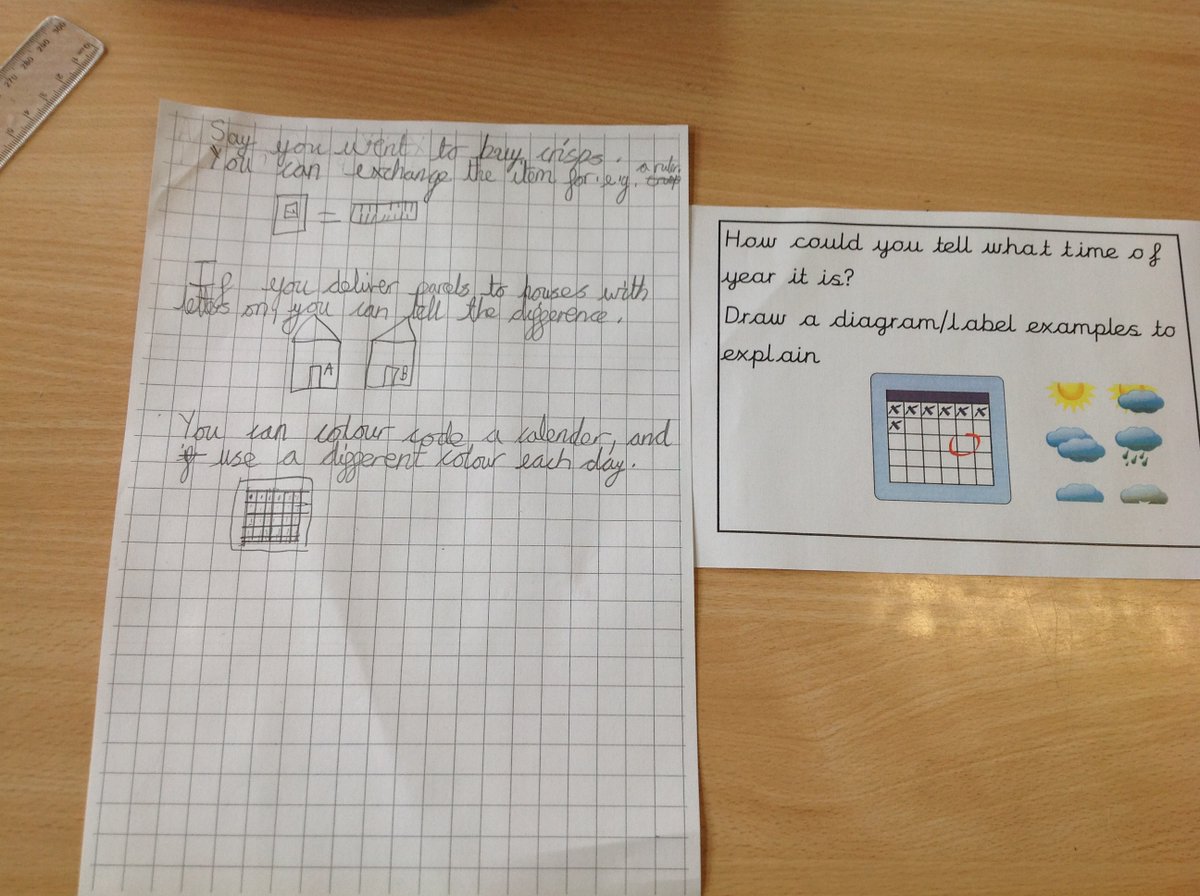 Say you went to buy crisps.
You can exchange the item for e.g. a ruler.
If you deliver parcels to houses with
letters on, you can tell the difference.
A B
You can colour code a calender, and
use a different colour each day.
How could you tell what time of
year it is?
Draw a diagram/label examples to
explain
270 280 290 300